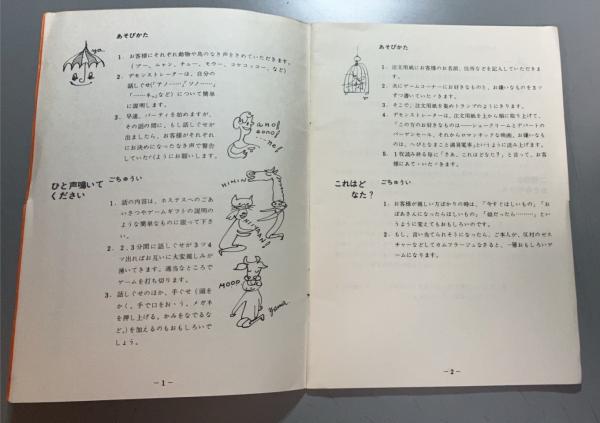 あそびかた
1. お客様にそれぞれ動物や鳥のなき声をきめていただきます。
(ブー、ニャン、チュー、モウー、コケコッコー、など)
2. デモンストレーターは、自分の
話しぐせ(「アノ……」「ソノ……」
「……ネ。」など)について簡単
に説明します。
3. 早速、パーティを始めますが、
その話の間に、もし話しぐせが
出ましたら、お客様がそれぞれ
にお決めになったなき声で警告
していたゞけるようにお願いします。
ひと声鳴いて
ください
ごちゅうい
1. 話の内容は、ホステスへのごあ
いさつやゲームギフトの説明のよ
うな簡単なものに限って下さ
い。
2. 2、3分間に話しぐせが3ツ4
ツ出ればお互いに大変親しみが
湧いてきます。適当なところで
ゲームを打ち切ります。
3. 話しぐせのほか、手ぐせ(頭を
かく、手で口をおゝう、メガネ
を押し上げる、かみをなでるな
ど。)を加えるのもおもしろいで
しょう。
ya
ano!
aono!
...ne!
HININ
MOOO
yama
－1－
あそびかた
1. 注文用紙にお客様のお名前、住所などを記入していただきま
す。
2. 次にゲームコーナーにお好きなものと、お嫌いなものを3ツ
ずつ書いていたゞきます。
3. そこで、注文用紙を集めトランプのようにきります。
4. デモンストレーターは、注文用紙を上から順に取り上げて、
「この方のお好きなものは――シュークリームとデパートの
バーゲンセール、それからロマンチックな映画、お嫌いなもの
は、へびとなまこと満員電車」というように読み上げます。
5. 1枚読み終る毎に「さあ、これはどなた？」と言って、お客
様にあてていたゞきます。
これはど
なた？
ごちゅうい
1. お客様が親しい方ばかりの時は、「今すぐほしいもの」「お
ばあさんになったらほしいもの」「娘だったら………」という
ように変えてもおもしろいです。
2. もし、言い当てられそうになったら、ご本人が、反対のゼス
チャーなどしてカムフラージュなさると、一層おもしろいゲ
ームになります。
－2－